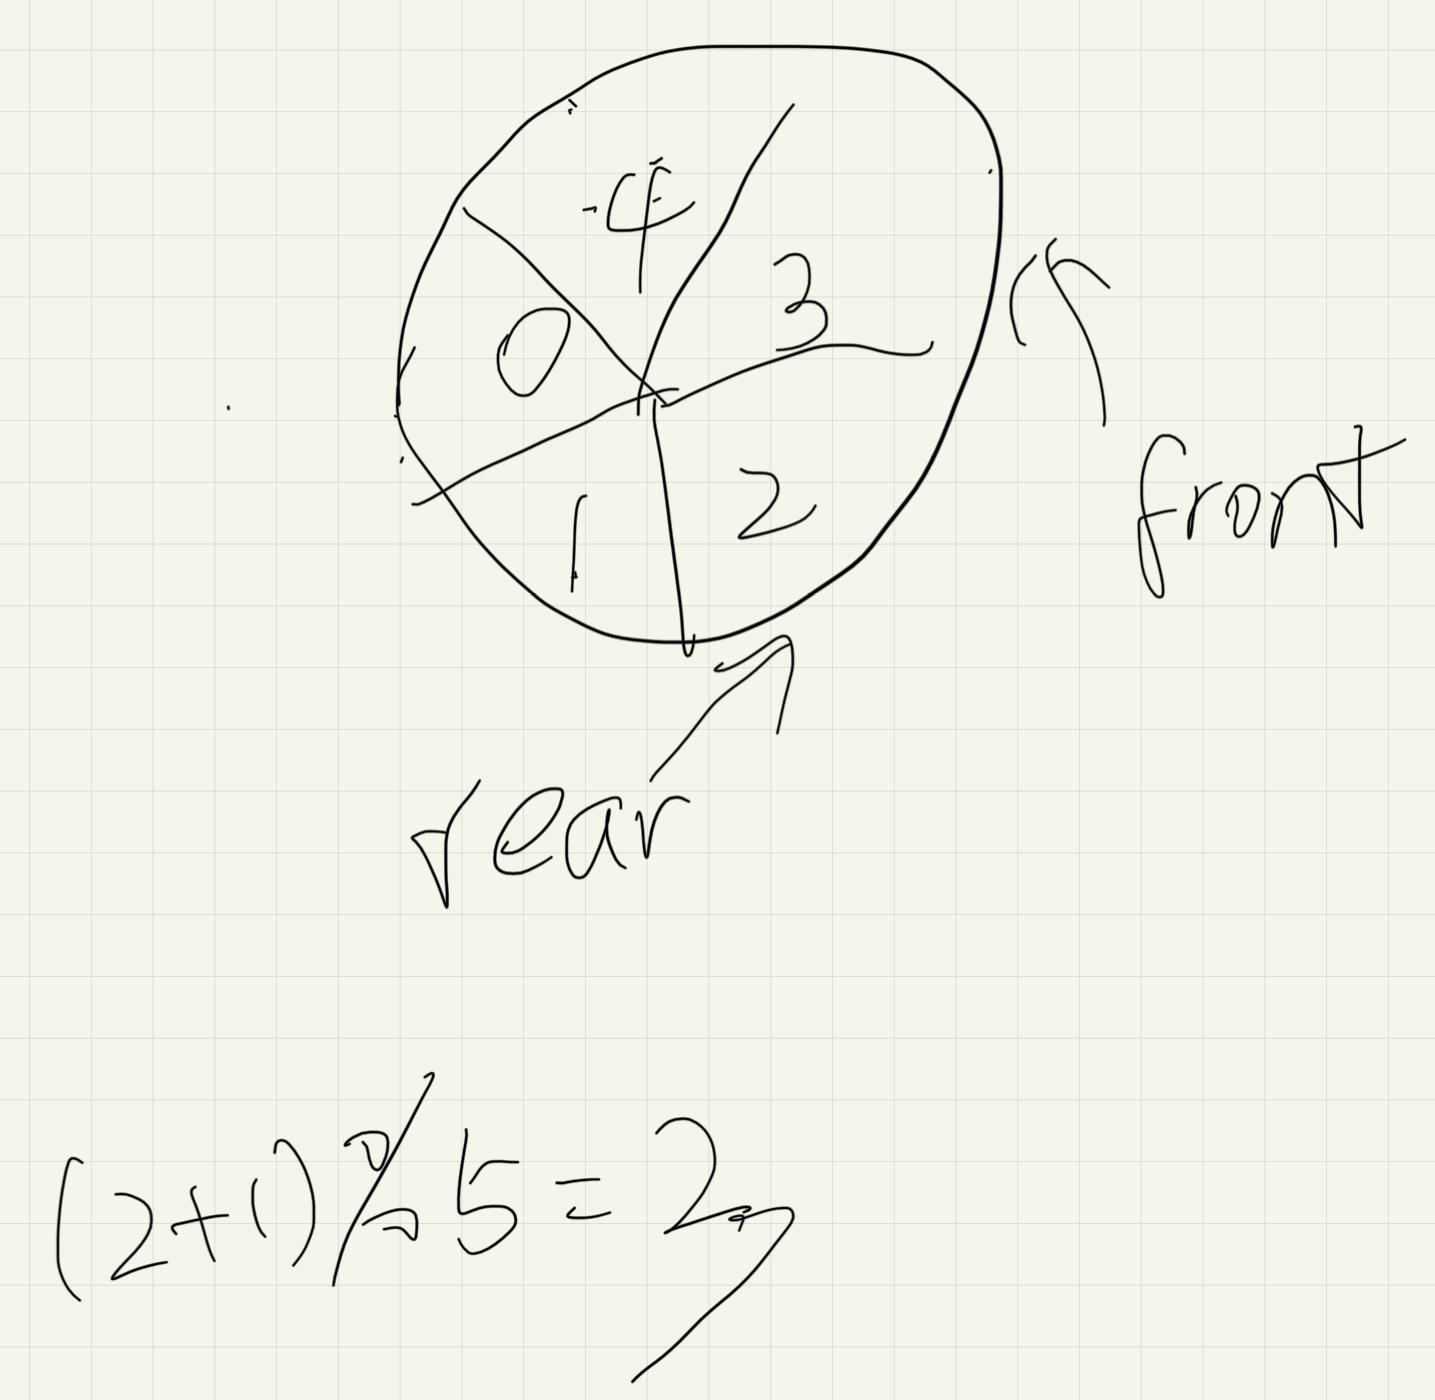 4
0 3
1 2
front
rear
(2+1)%5=3